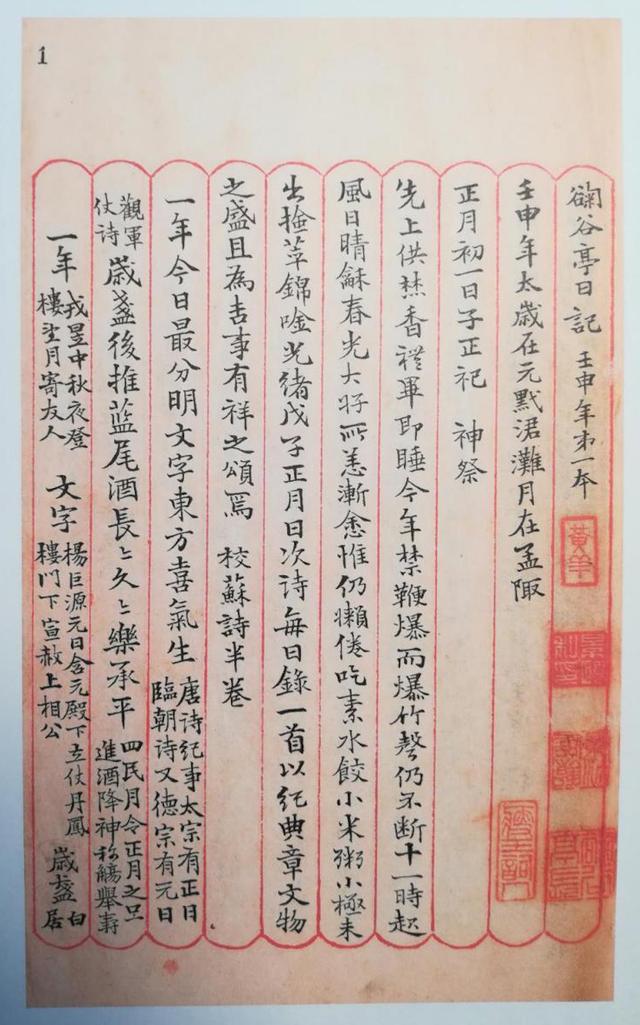 1
鞠谷亭日記 壬申年第一本
壬申年太歲在元黓涒灘月在孟陬
正月初一日子正祀 神祭
先上供焚香禮畢即睡今年禁鞭爆而爆竹聲仍不斷十一時起
風日晴龢春光大好所恙漸愈惟仍懶倦吃素水餃小米粥小極未
出撿莘錦唫光緒戊子正月日次詩每日錄一首以紀典章文物
之盛且為吉事有祥之頌焉 校蘇詩半卷
一年今日最分明文字東方喜氣生 唐詩紀事太宗有正日
臨朝詩又德宗有元日
觀軍
仗詩 歲盞後推蓝尾酒長〻久〻樂承平 四民月令正月之旦
進酒降神称觴舉壽
一年 戎昱中秋夜登
樓望月寄友人 文字 楊巨源元日含元殿下立仗丹鳳
樓門下宣赦上相公 歲盞 白
居
黃羊